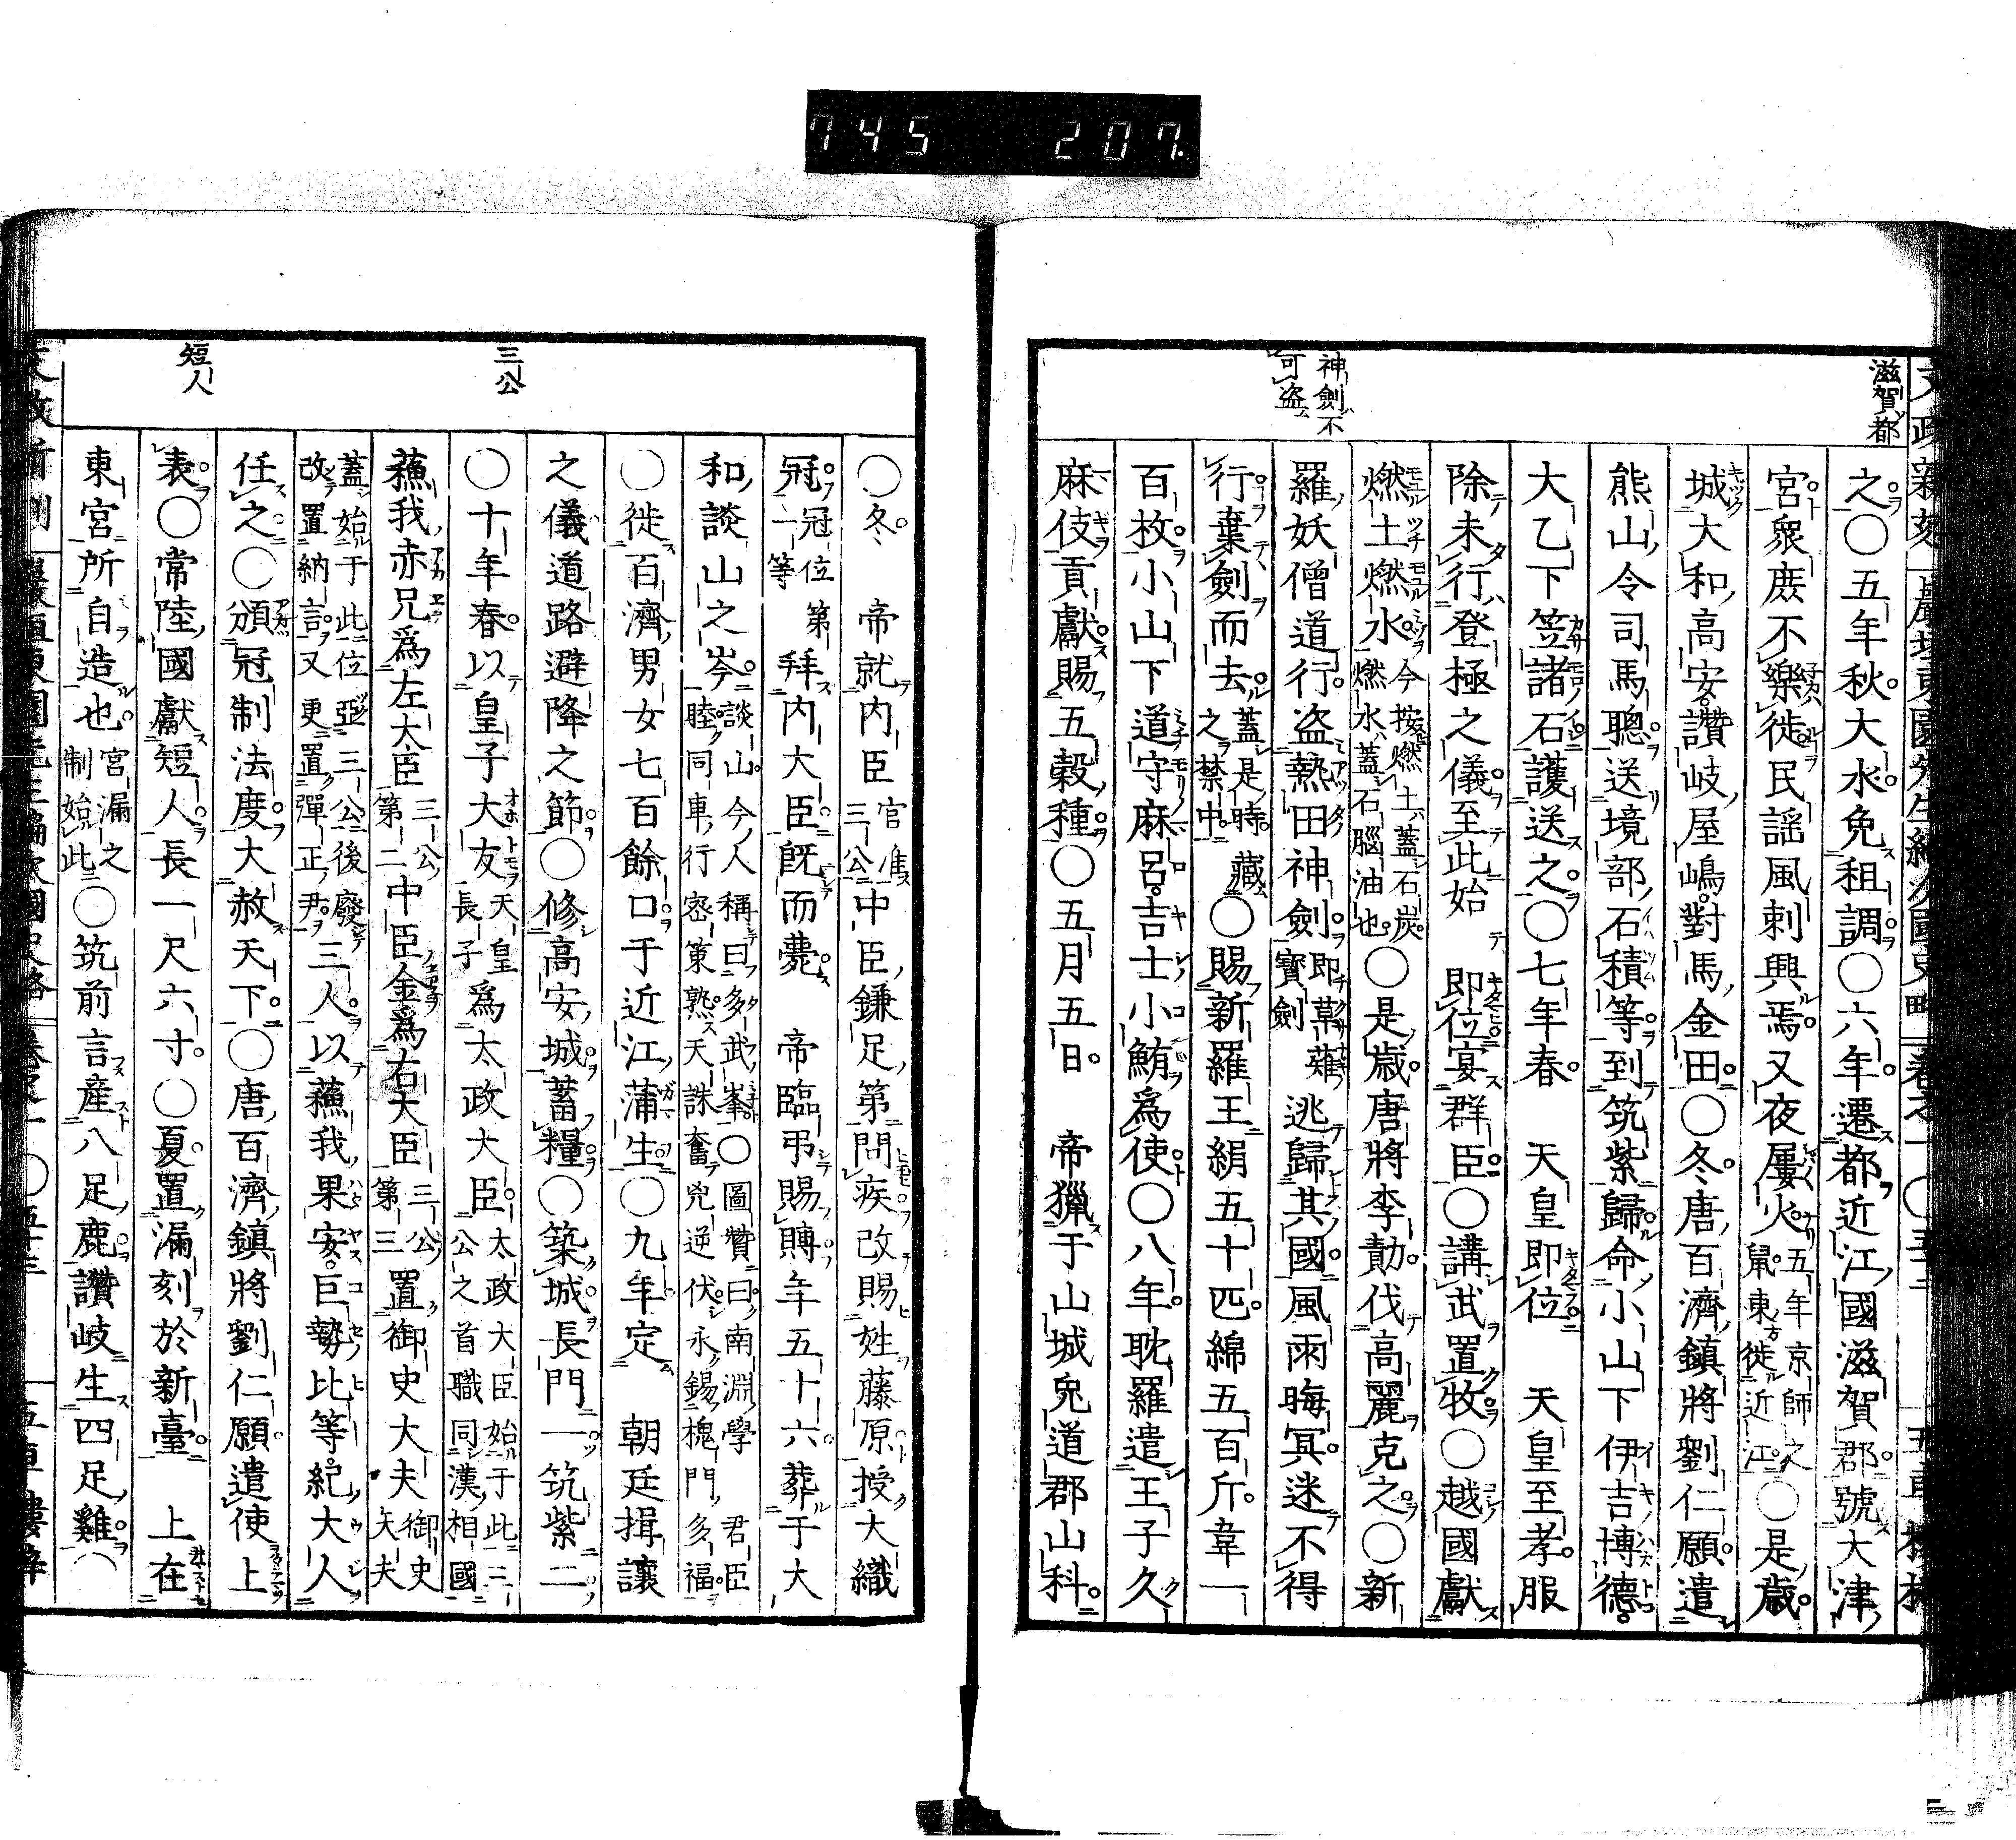 745 207.
滋賀都
之○五年秋大水免租調○六年遷都近江國滋賀郡號大津
宮衆庶不樂徙民謡風刺興焉又夜屢火五年京師之鼠東方徙近江○是歳
城大和高安讃岐屋嶋對馬金田○冬唐百濟鎮將劉仁願遣
熊山令司馬聰送境部石積等到筑紫歸命小山下伊吉博德
大乙下笠諸石護送之○七年春 天皇即位 天皇至孝服
除未行登極之儀至此始 即位宴群臣○講武置牧○越國獻
燃土燃水今按燃土蓋石炭燃水蓋石腦油也○是歳唐將李勣伐高麗克之○新
神劍不
可盗
羅妖僧道行盗熱田神劍即草薙寳劍逃歸其國風雨晦冥迷不得
行棄劍而去蓋是時藏之禁中○賜新羅王絹五十匹綿五百斤韋一
百枚小山下道守麻呂吉士小鮪爲使○八年耽羅遣王子久
麻伎貢獻賜五穀種○五月五日 帝獵于山城兎道郡山科
○冬 帝就内臣官准三公中臣鎌足第問疾改賜姓藤原授大織
冠冠位第一等拜内大臣既而薨 帝臨弔賜賻年五十六葬于大
和談山之岑談山今人稱曰多武峯○圖贊曰南淵學君臣睦同車行密策熟天誅奮兇逆伏永錫槐門多福
○徙百濟男女七百餘口于近江蒲生○九年定 朝廷揖讓
之儀道路避降之節○修高安城蓄糧○築城長門一筑紫二
三公
○十年春以皇子大友天皇長子爲太政大臣太政大臣始于此三公之首職同漢相國
蘓我赤兄爲左大臣三公第二中臣金爲右大臣三公第三置御史大夫御史大夫
蓋始于此位亞三公後廢改置納言又更置彈正尹三人以蘓我果安巨勢比等紀大人
任之○頒冠制法度大赦天下○唐百濟鎮將劉仁願遣使上
短人
表○常陸國獻短人長一尺六寸○夏置漏刻於新臺 上在
東宮所自造也宮漏之制始此○筑前言産八足鹿讃岐生四足雞○